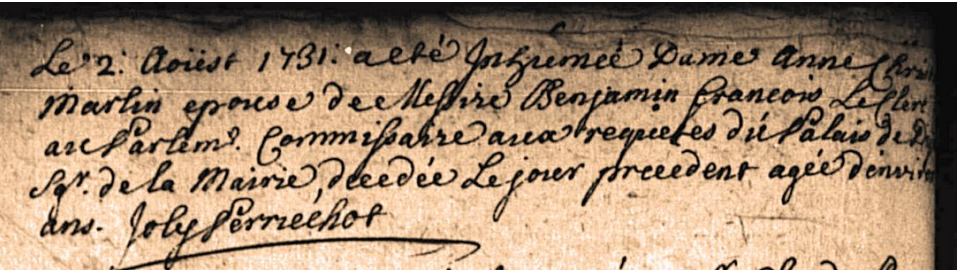 Le 2. Aoüst 1731. a eté Inhumeé Dame Anne
Martin epouse de Messire Benjamin francois LeClerc
au Parlemt. Commissaire aux requetes du Palais de
Sgr. de la Mairie, decedée Le jour precedent agée d'environ
ans. Joly Perruchot